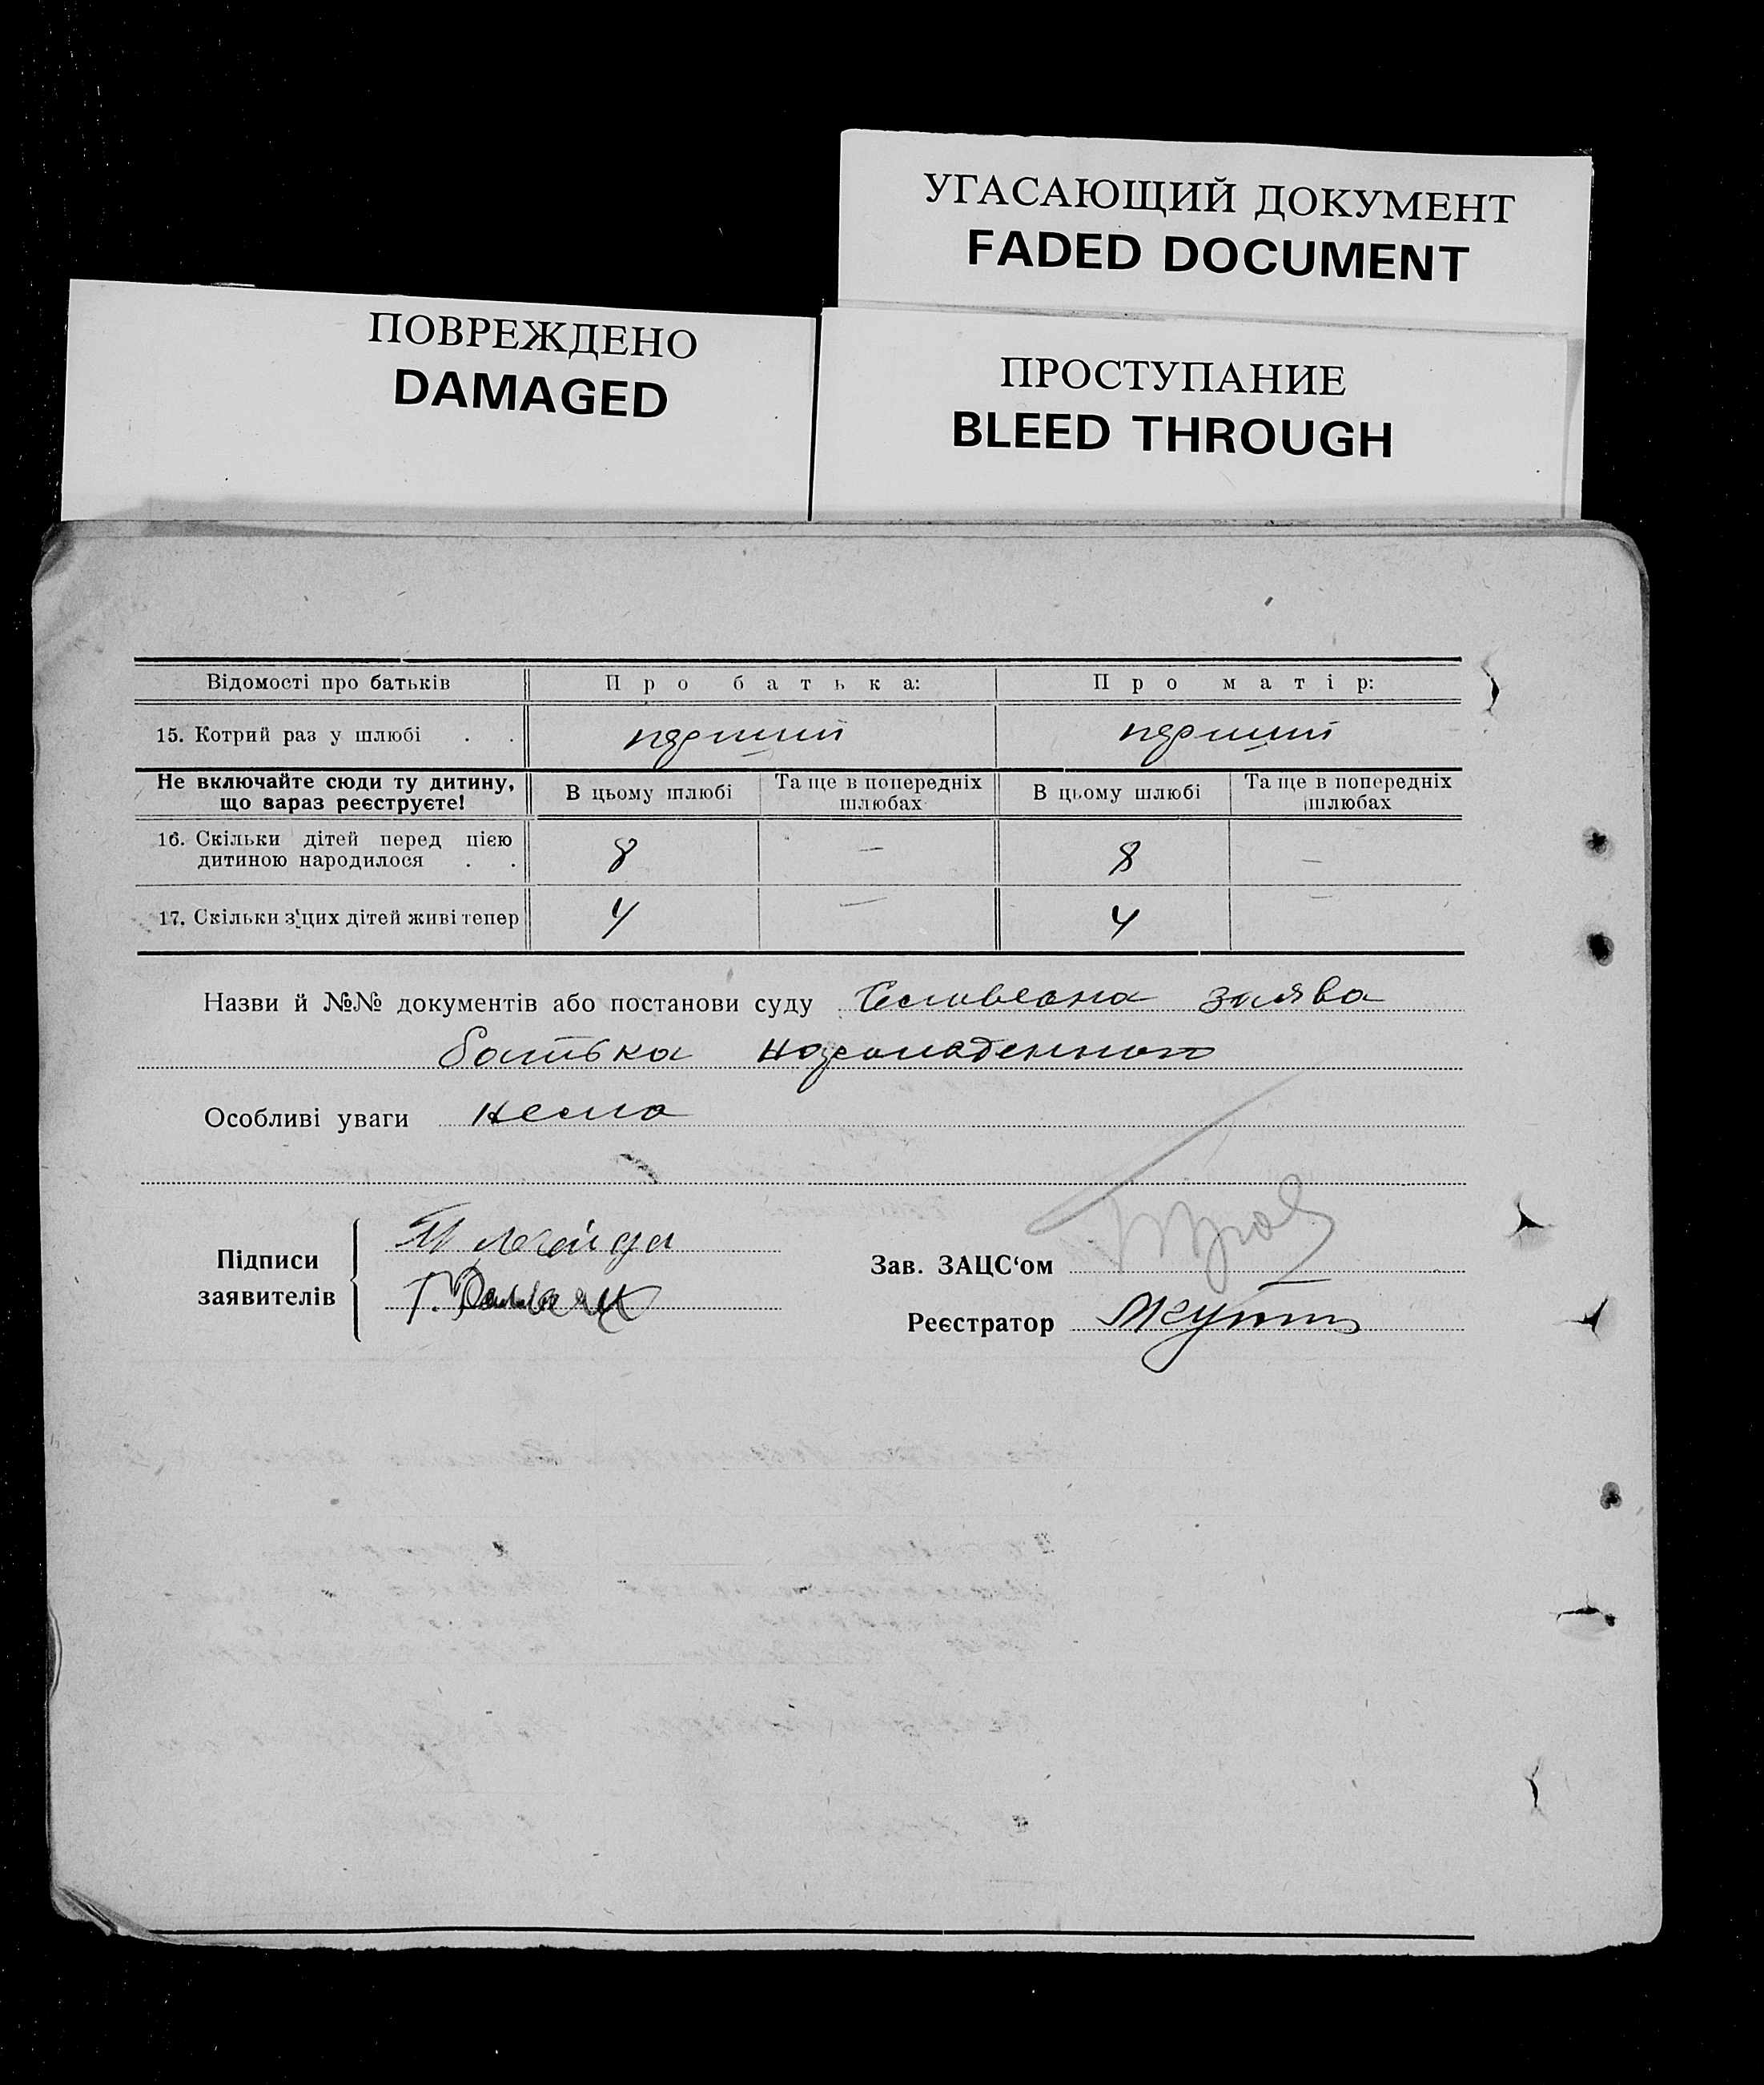 УГАСАЮЩИЙ ДОКУМЕНТ
FADED DOCUMENT
ПОВРЕЖДЕНО
DAMAGED
ПРОСТУПАНИЕ
BLEED THROUGH
Відомості про батьків Про батька: Про матір:
15. Котрий раз у шлюбі . . перший перший
Не включайте сюди ту дитину, що зараз реєструєте! В цьому шлюбі Та ще в попередніх шлюбах В цьому шлюбі Та ще в попередніх шлюбах
16. Скільки дітей перед цією
дитиною народилося . . 8 — 8 —
17. Скільки з'цих дітей живі тепер 4 — 4 —
Назви й №№ документів або постанови суду заява
батька народженного
Особливі уваги нема
Підписи
заявителів
Зав. ЗАЦС'ом
Реєстратор